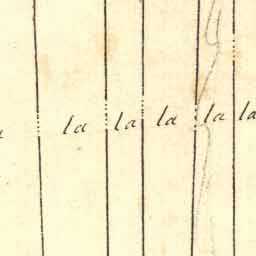 la la la la la